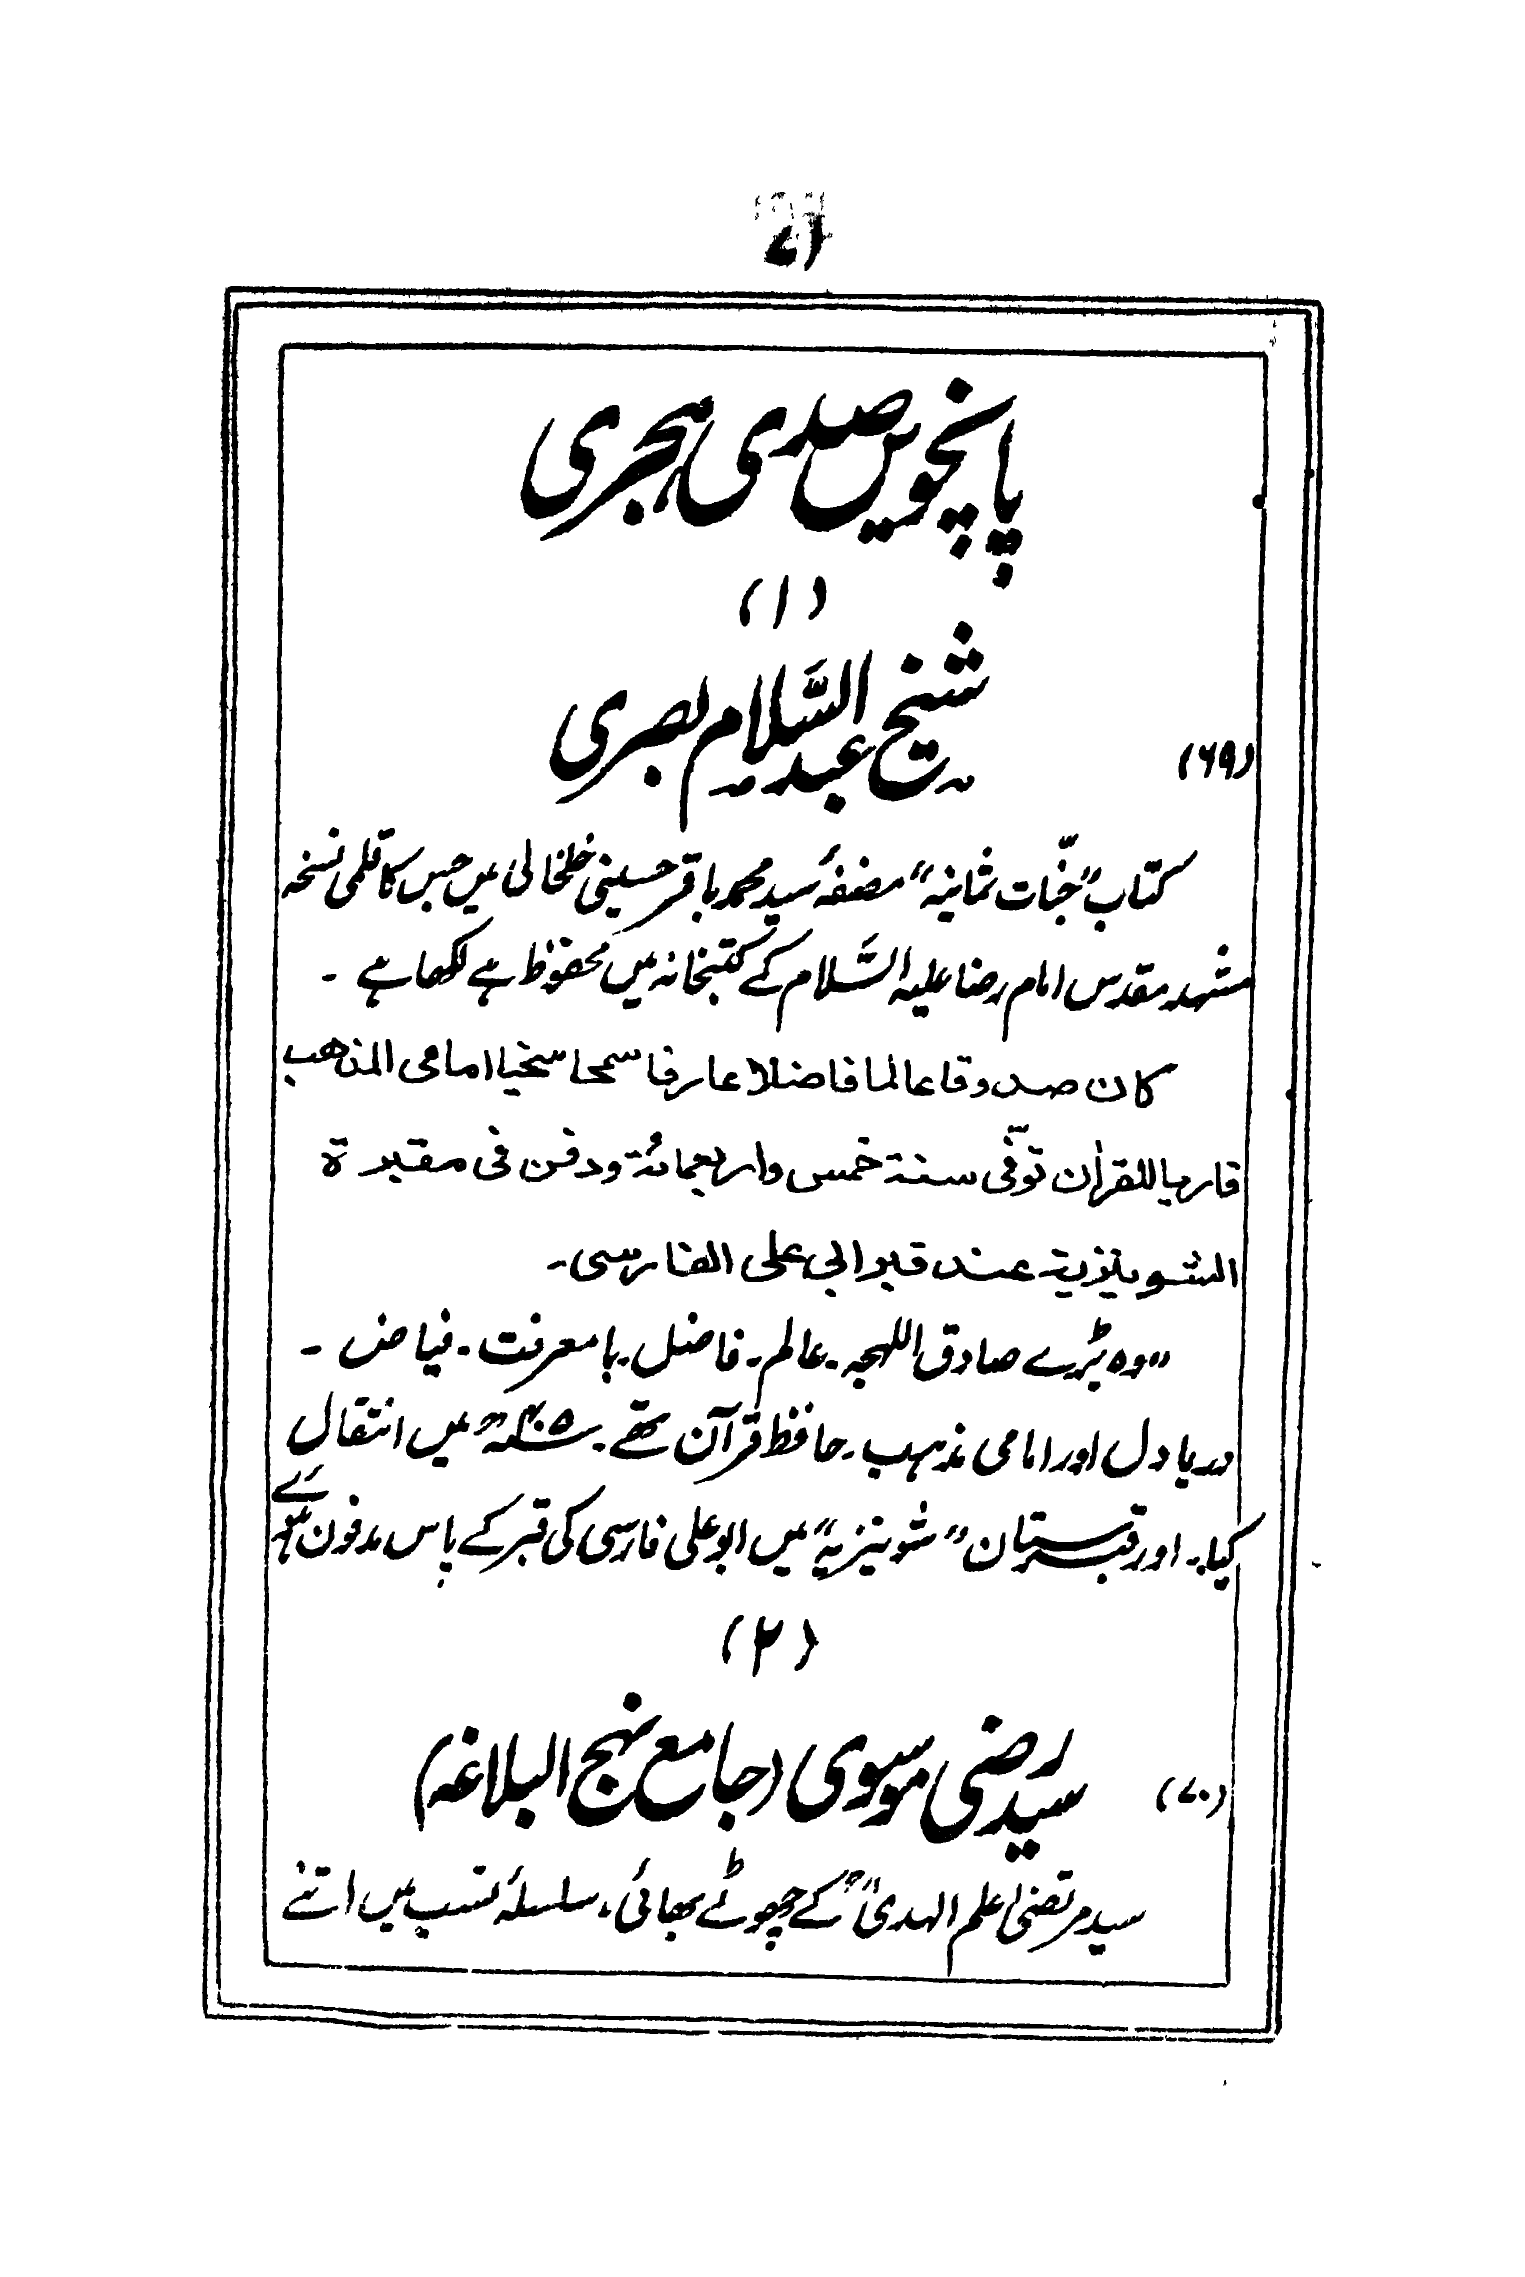 ۷۱
پانچویں صدی ہجری
(۱)
(۶۹) شیخ عبد السّلام بصری
کتاب "جنّات ثمانیہ" مصنفۂ سید محمد باقر حسینی خلخالی میں جس کا قلمی نسخہ
مشہد مقدس امام رضا علیہ السَّلام کے کتبخانہ میں محفوظ ہے لکھا ہے ۔
کان صدوقا عالما فاضلا عارفا سمحا سخیا امامی المذھب
قاریا للقرأن توفّی سنۃ خمس واربعمائۃ ودفن فی مقبرۃ
الشونیزیۃ عند قبر ابی علی الفارسی۔
"وہ بڑے صادق اللہجہ۔ عالم۔ فاضل۔ بامعرفت۔ فیاض ۔
دریا دل اور امامی مذہب۔ حافظ قرآن تھے۔ ۴۰۵ھ میں انتقال
کیا۔ اور قبرستان "شونیزیہ" میں ابو علی فارسی کی قبر کے پاس مدفون ہوئے
(۲)
(۷۰) سید رضی موسوی (جامع نہج البلاغہ)
سید مرتضیٰ علم الہدیٰؒ کے چھوٹے بھائی، سلسلۂ نسب میں اتنے